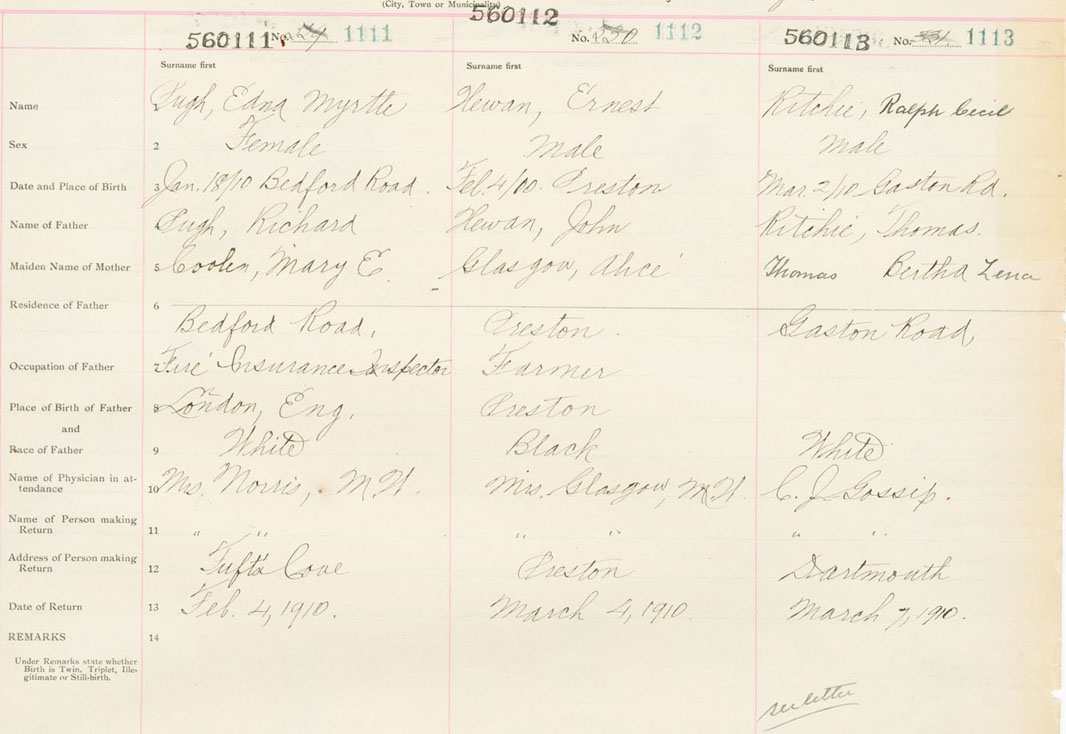 (City, Town or Municipality)
560111 No. 1111 560112 No. 530 1112 560113 No. 531 1113
Surname first Surname first Surname first
Name 1 Pugh, Edna Myrtte Hewan, Ernest Ritchie, Ralph Cecil
Sex 2 Female Male Male
Date and Place of Birth 3 Jan. 18/10 Bedford Road. Feb. 4/00. Preston Mar. 2/10 Gaston Rd.
Name of Father 4 Pugh, Richard Hewan, John Ritchie, Thomas.
Maiden Name of Mother 5 Coolen, Mary E Glasgow, Alice Thomas Bertha Lena
Residence of Father 6
Bedford Road, Preston. Gaston Road,
Occupation of Father 7 Fire Insurance Inspector Farmer
Place of Birth of Father 8 London, Eng. Preston
and
Race of Father 9 White Black White
Name of Physician in at-
tendance 10 Mrs. Norris, M.W. Mrs. Glasgow, M.W. C. J. Gossip.
Name of Person making
Return 11 " " " " " "
Address of Person making
Return 12 Tufts Cove Preston Dartmouth
Date of Return 13 Feb. 4, 1910. March 4, 1910. March 7, 1910.
REMARKS 14
Under Remarks state whether
Birth is Twin, Triplet, Ille-
gitimate or Still-birth.
see letter